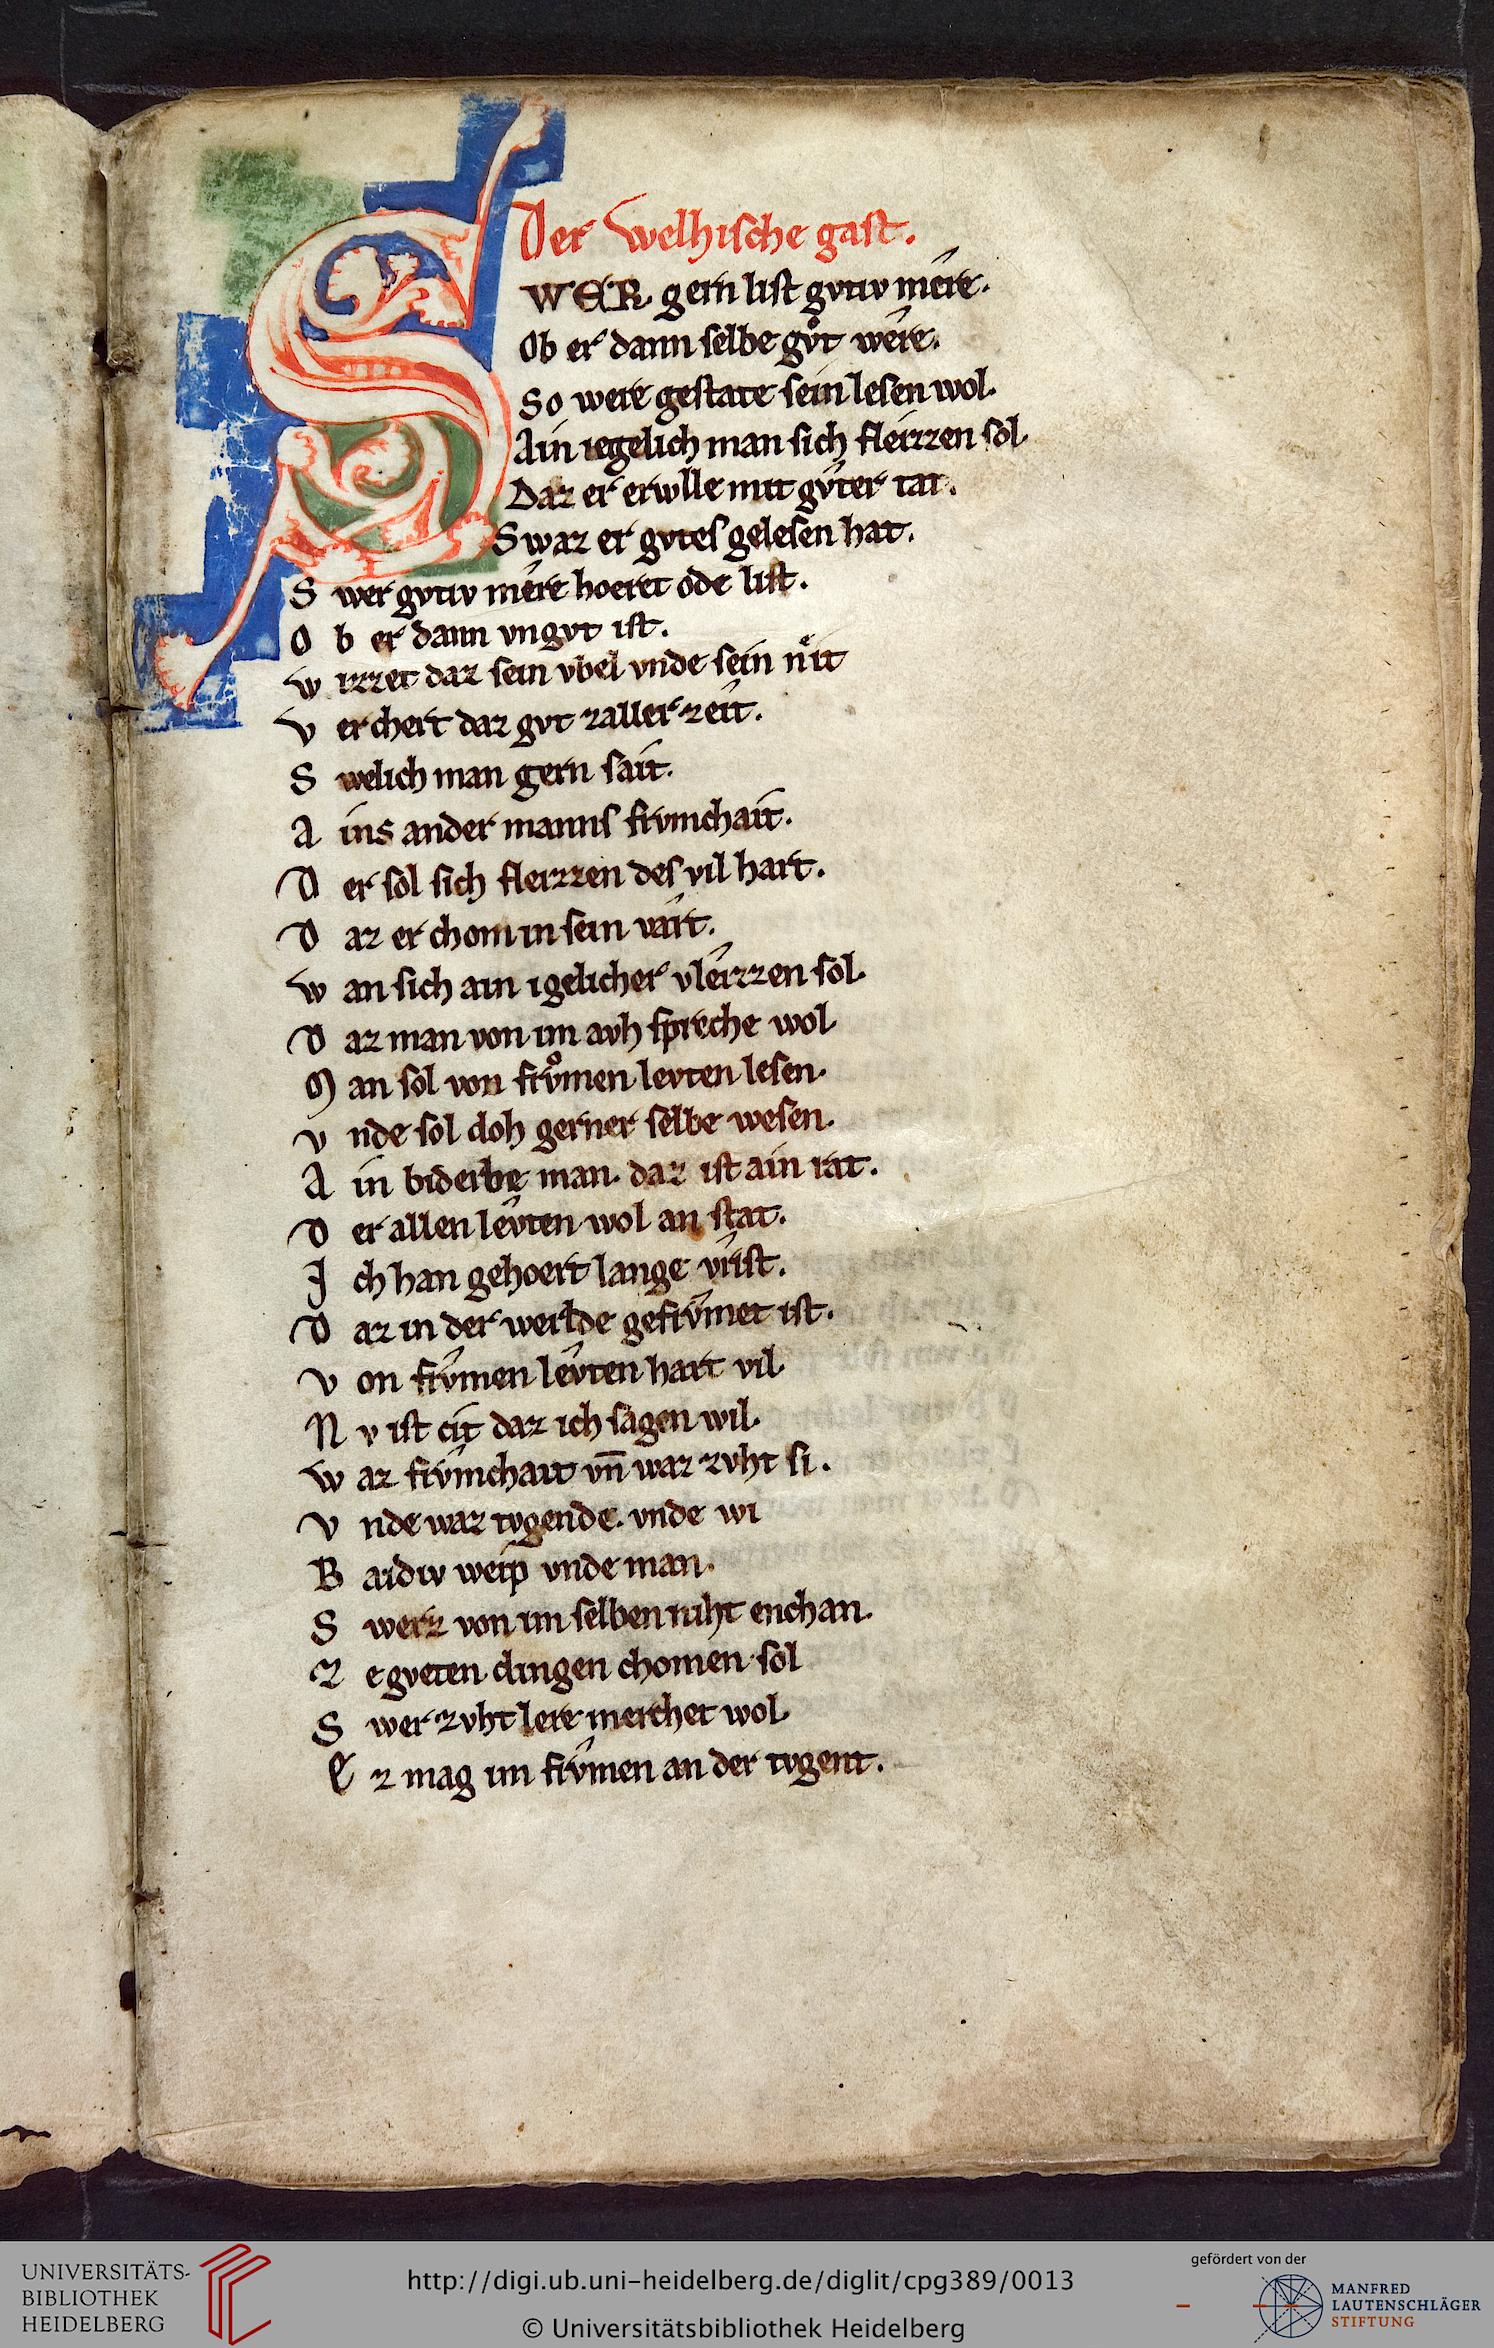 Der welhische gast.
SWER gern list gvtiv mere.
Ob er dann selbe gvͦt were.
So were gestate sein lesen wol.
Ain iegelich man sich fleizzen sol.
Daz er ervͮlle mit gvter tat.
Swaz er gvtes gelesen hat.
S wer gvtiv mere hoeret ode list.
O b er dann vngvt ist.
W izzet daz sein vbel vnde sein nit
V erchert daz gvt zaller zeit.
S welich man gern sait.
A ins ander manns frvmchait.
D er sol sich fleizzen des vil hart.
D az er chom in sein vart.
W an sich ain igelicher vleizzen sol.
D az man von im avh spreche wol
M an sol von frvͦmen levten lesen.
V nde sol doh gerner selbe wesen.
A in biderbe man. daz ist ain rat.
D er allen levten wol an stat.
I ch han gehoert lange vrist.
D az in der werlde gefrvmet ist.
V on frvmen levten hart vil.
N v ist cit daz ich sagen wil.
W az frvmchait vn̄ waz zvht si.
V nde waz tvgende. vnde wi
B aidiv weip vnde man.
S werz von im selben niht enchan.
Z e gveten dingen chomen sol
S wer zvht lere merchet wol.
E z mag im frvmen an der tvgent.
UNIVERSITÄTS-
BIBLIOTHEK
HEIDELBERG
http://digi.ub.uni-heidelberg.de/diglit/cpg389/0013
© Universitätsbibliothek Heidelberg
gefördert von der
MANFRED
LAUTENSCHLÄGER
STIFTUNG